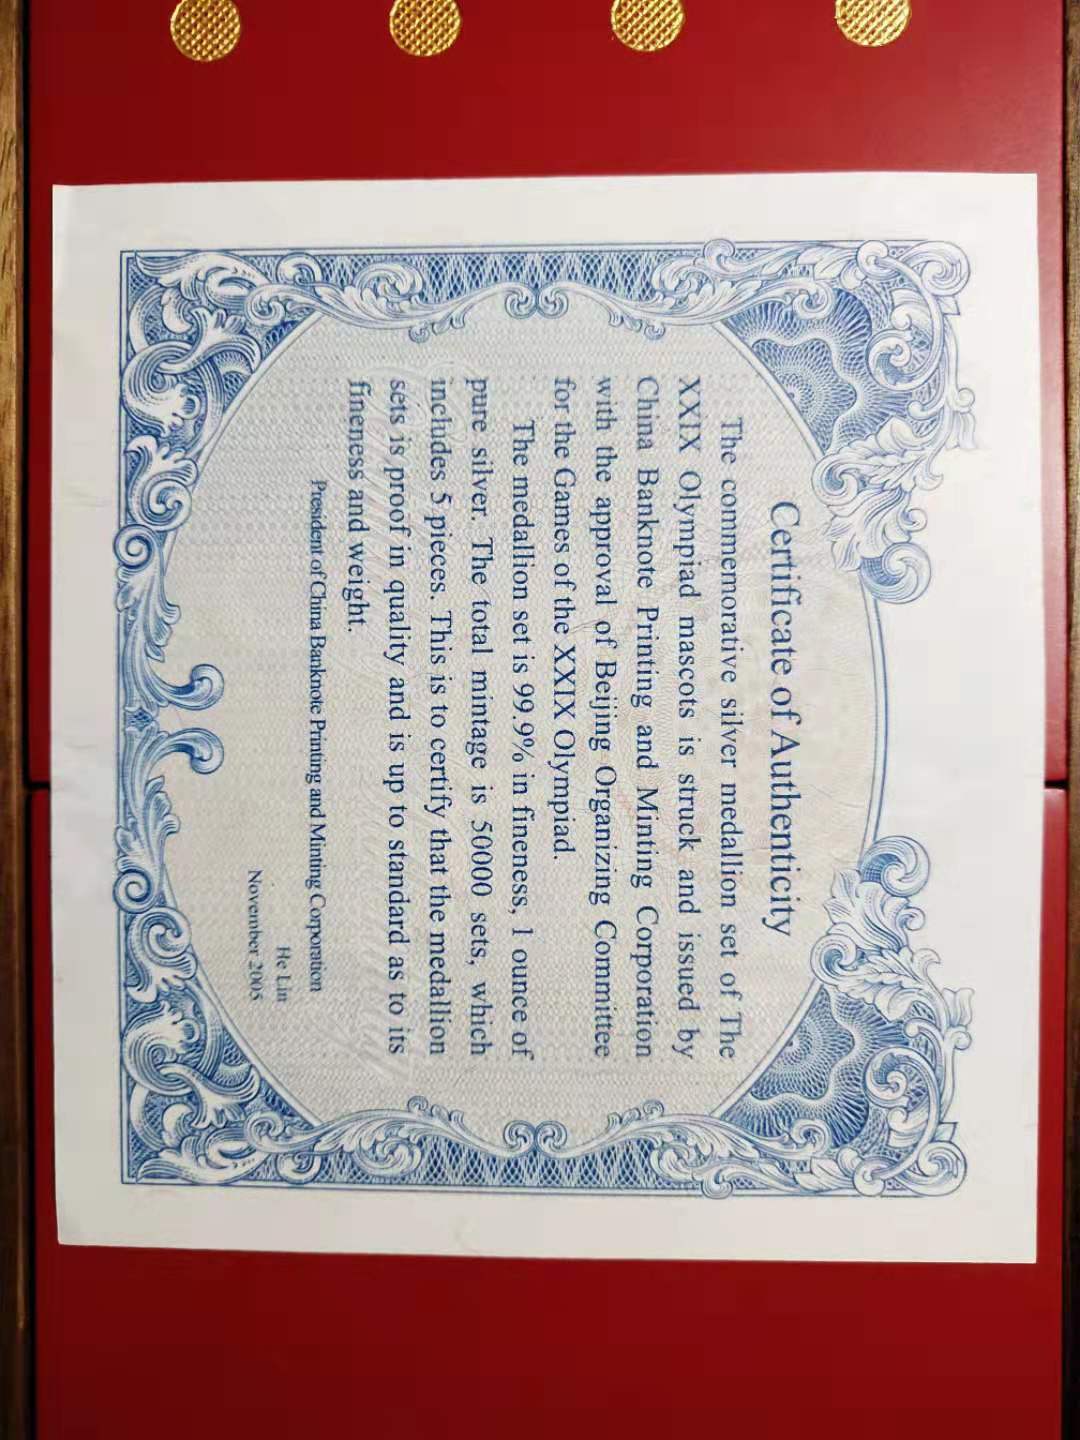 Certificate of Authenticity
The commemorative silver medallion set of The
XXIX Olympiad mascots is struck and issued by
China Banknote Printing and Minting Corporation
with the approval of Beijing Organizing Committee
for the Games of the XXIX Olympiad.
The medallion set is 99.9% in fineness, 1 ounce of
pure silver. The total mintage is 50000 sets, which
includes 5 pieces. This is to certify that the medallion
sets is proof in quality and is up to standard as to its
fineness and weight.
President of China Banknote Printing and Minting Corporation
He Lin
November 2005